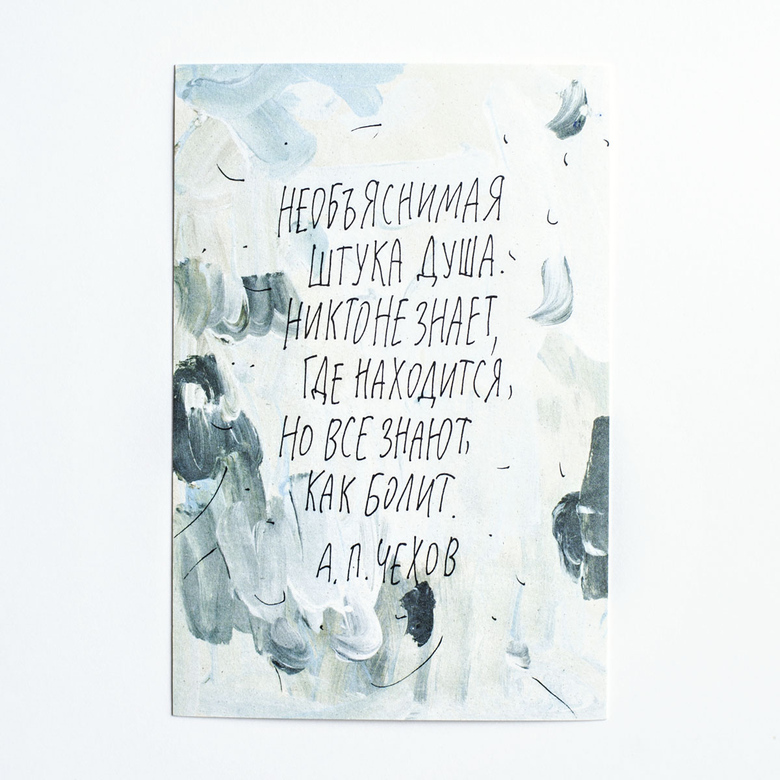 НЕОБЪЯСНИМАЯ
ШТУКА ДУША.
НИКТО НЕ ЗНАЕТ,
ГДЕ НАХОДИТСЯ,
НО ВСЕ ЗНАЮТ,
КАК БОЛИТ.
А. П. ЧЕХОВ